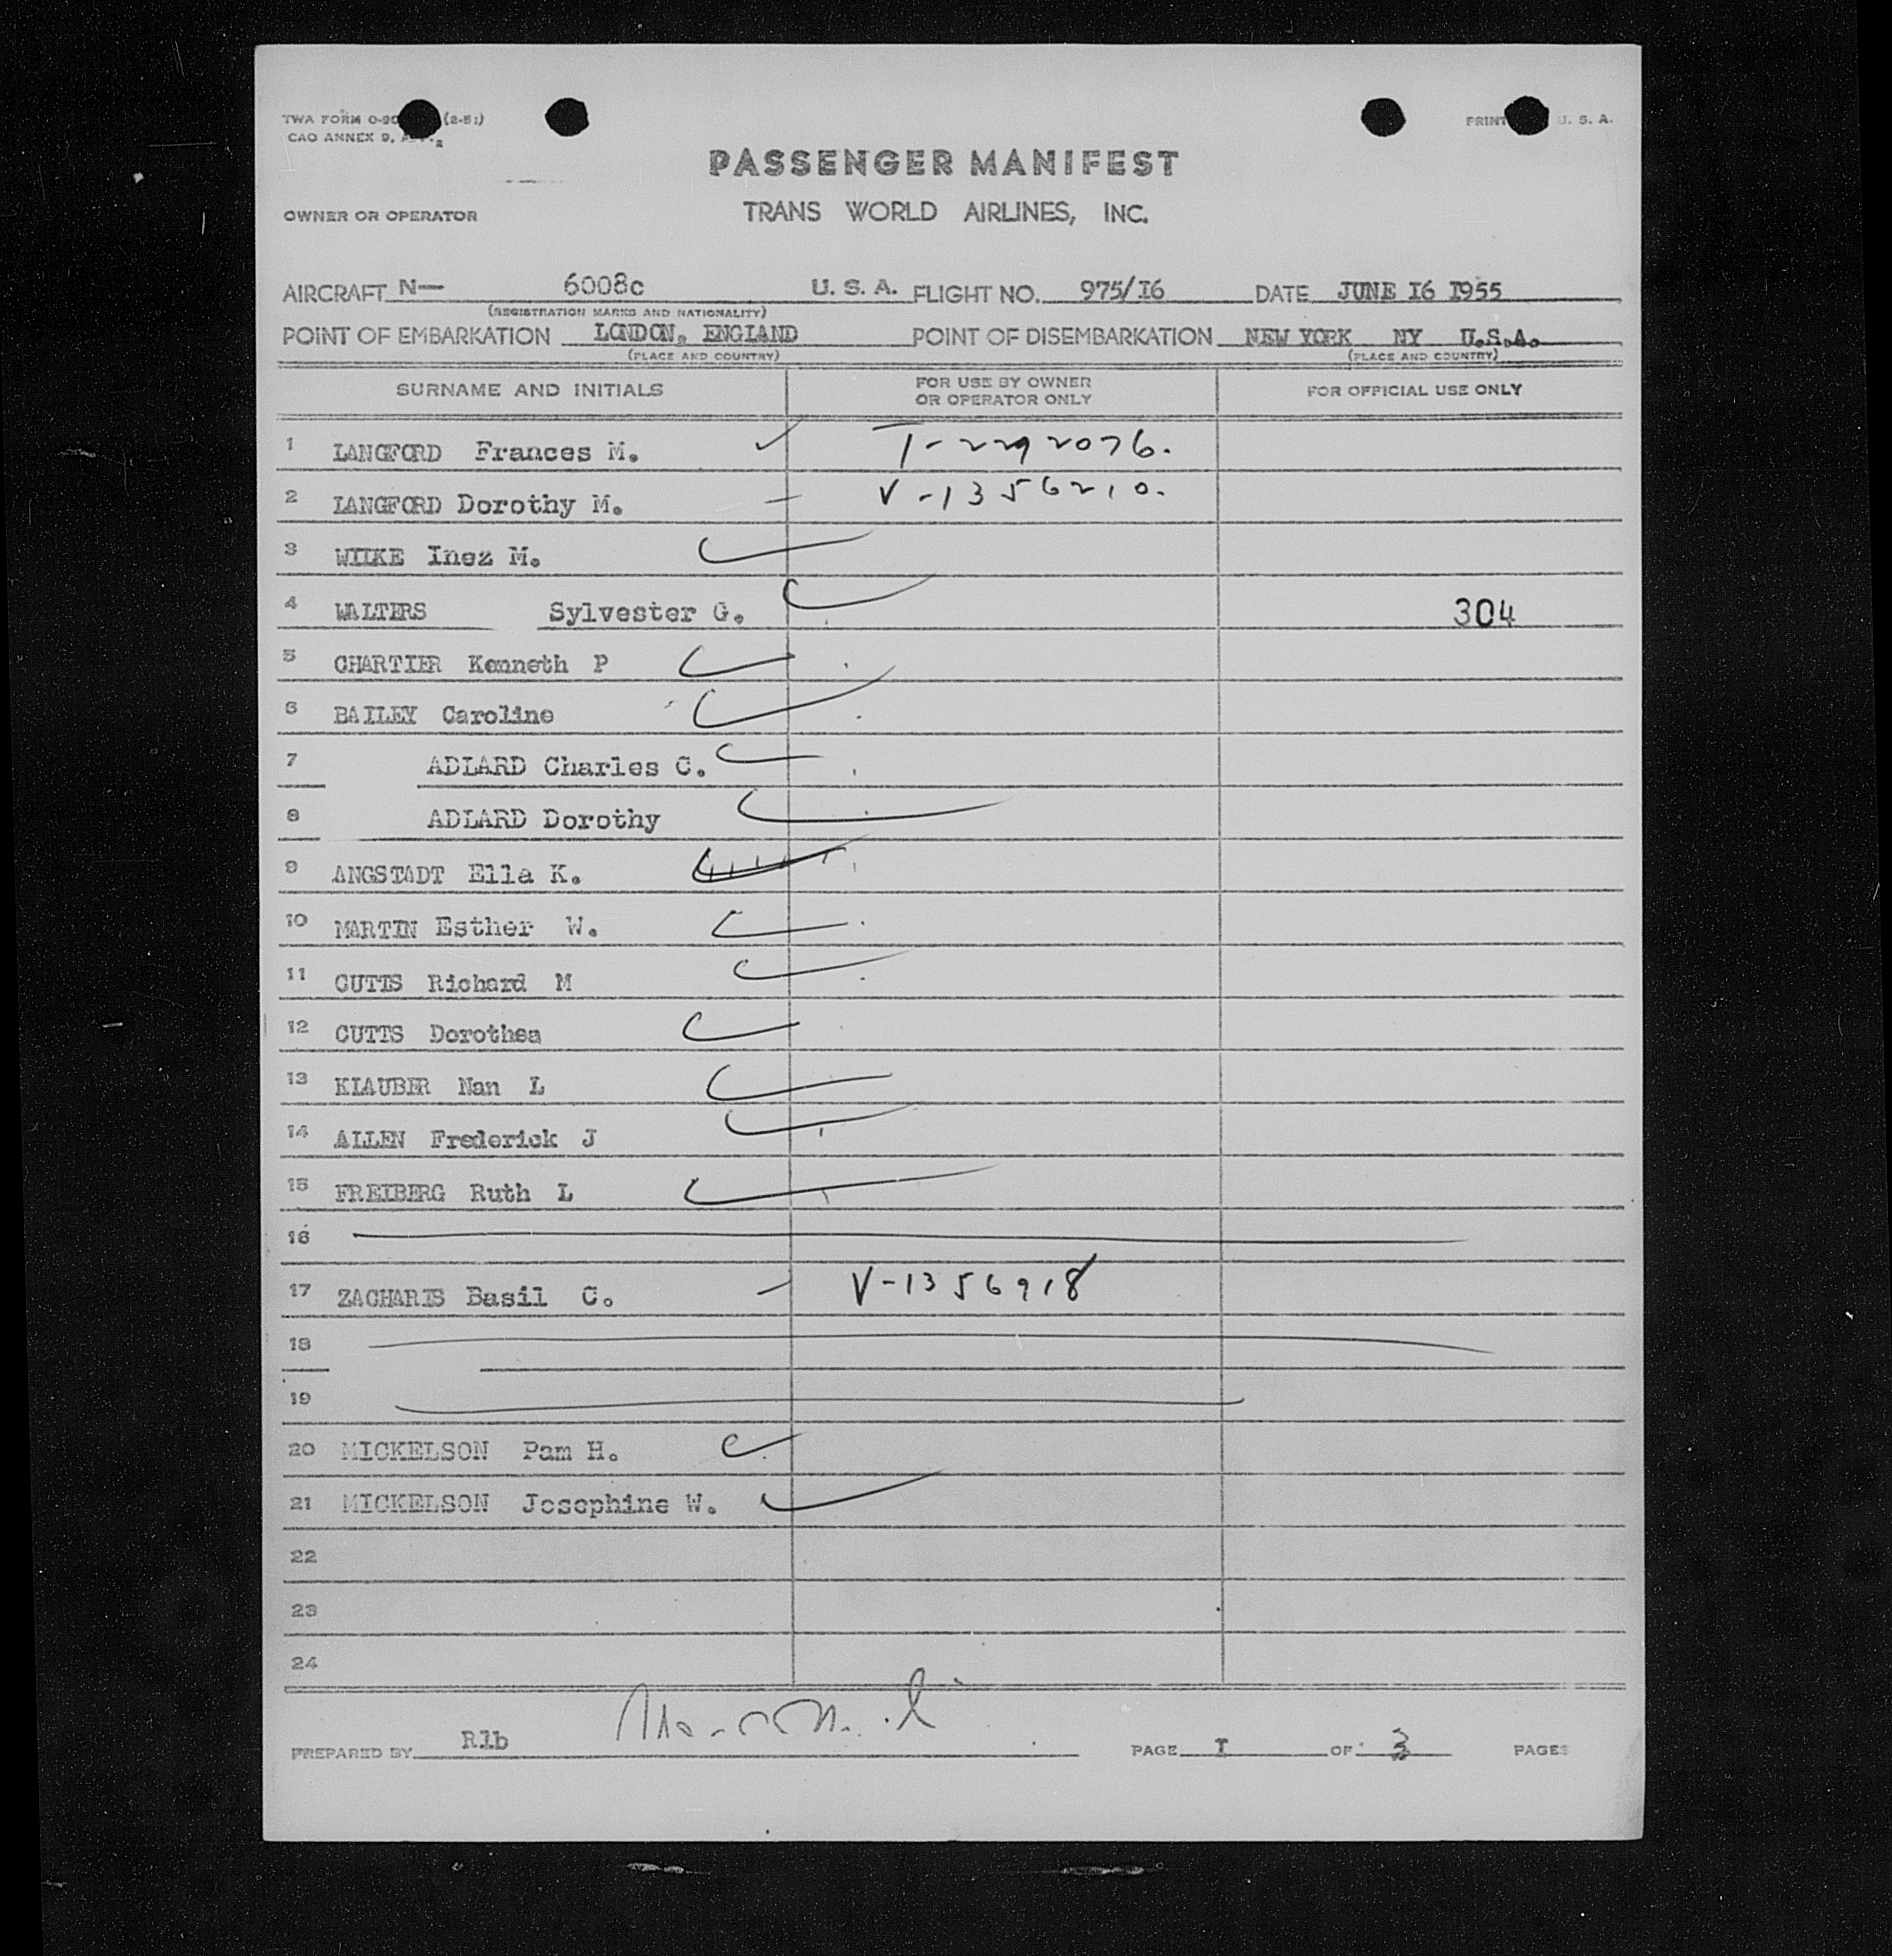 TWA FORM 0-20 (2-51)
CAO ANNEX 9,
PRINT U. S. A.
PASSENGER MANIFEST
OWNER OR OPERATOR TRANS WORLD AIRLINES, INC.
AIRCRAFT N— 6008c U. S. A. FLIGHT NO. 975/I6 DATE JUNE I6 I955
(REGISTRATION MARKS AND NATIONALITY)
POINT OF EMBARKATION LONDON, ENGLAND POINT OF DISEMBARKATION NEW YORK NY U.S.A.
(PLACE AND COUNTRY) (PLACE AND COUNTRY)
SURNAME AND INITIALS FOR USE BY OWNER OR OPERATOR ONLY FOR OFFICIAL USE ONLY
1 LANGFORD Frances M. T-2292076.
2 LANGFORD Dorothy M. V-1356210.
3 WILKE Inez M.
4 WALTERS Sylvester G. 304
5 CHARTIER Kenneth P
6 BAILEY Caroline
7 ADLARD Charles C.
8 ADLARD Dorothy
9 ANGSTADT Ella K.
10 MARTIN Esther W.
11 CUTTS Richard M
12 CUTTS Dorothea
13 KLAUBER Nan L
14 ALLEN Frederick J
15 FREIBERG Ruth L
16
17 ZACHARIS Basil C. V-1356918
18
19
20 MICKELSON Pam H.
21 MICKELSON Josephine W.
22
23
24
PREPARED BY Rlb PAGE I OF 3 PAGES